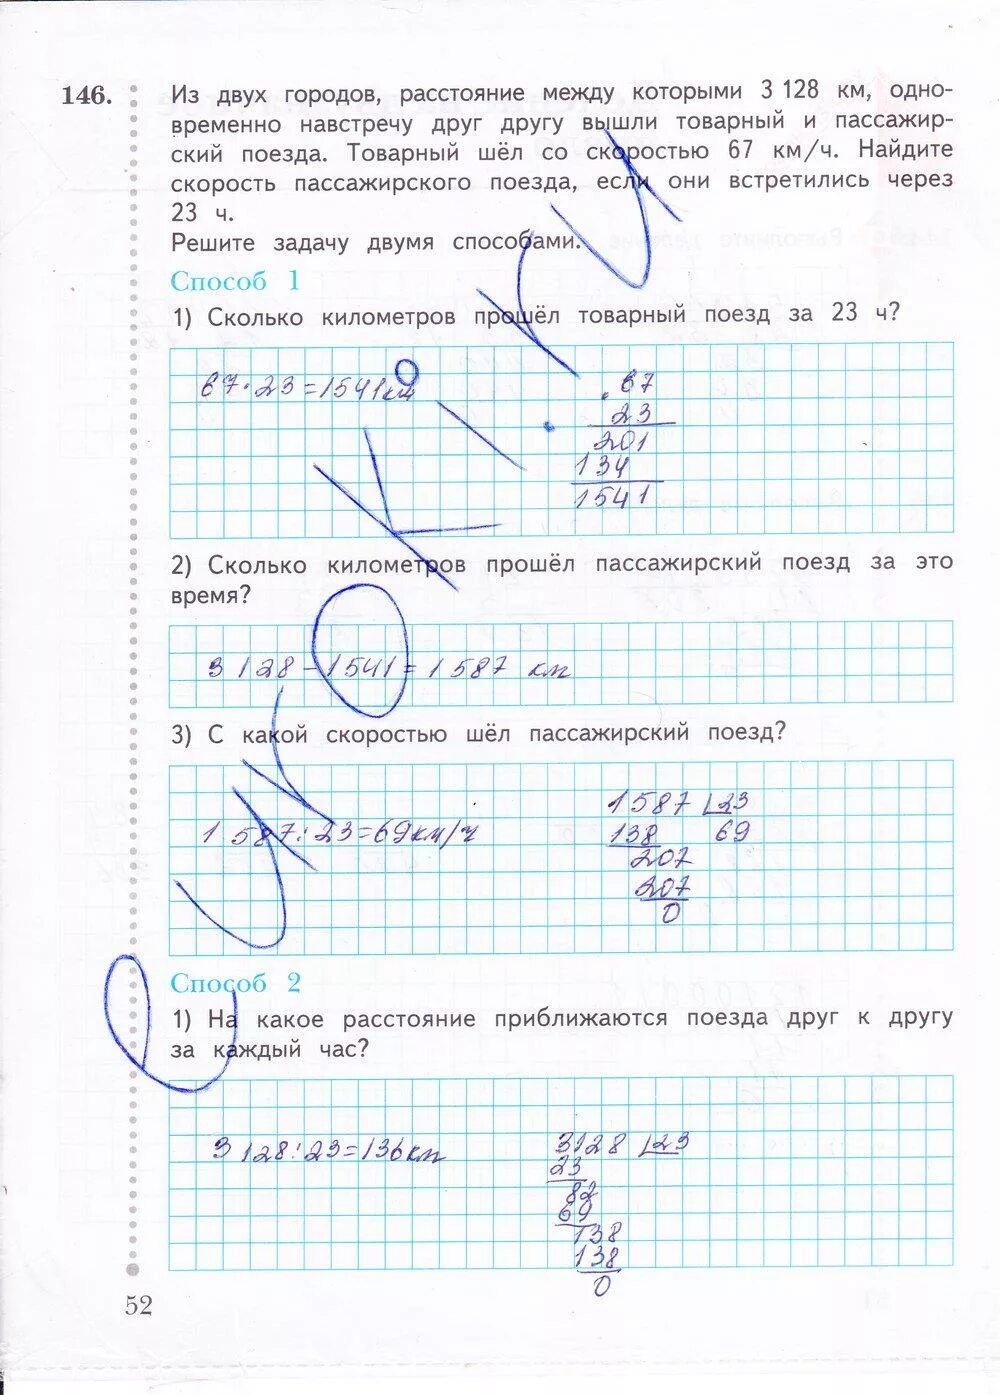 146.
Из двух городов, расстояние между которыми 3 128 км, одно-
временно навстречу друг другу вышли товарный и пассажир-
ский поезда. Товарный шёл со скоростью 67 км/ч. Найдите
скорость пассажирского поезда, если они встретились через
23 ч.
Решите задачу двумя способами.
Способ 1
1) Сколько километров прошёл товарный поезд за 23 ч?
67·23=1541км
67
23
201
134
1541
2) Сколько километров прошёл пассажирский поезд за это
время?
3 128-1541=1587 км
3) С какой скоростью шёл пассажирский поезд?
1 587:23=69км/ч
1587 23
138 69
207
207
0
Способ 2
1) На какое расстояние приближаются поезда друг к другу
за каждый час?
3 128:23=136км
3128 23
23
82
69
138
138
0
52